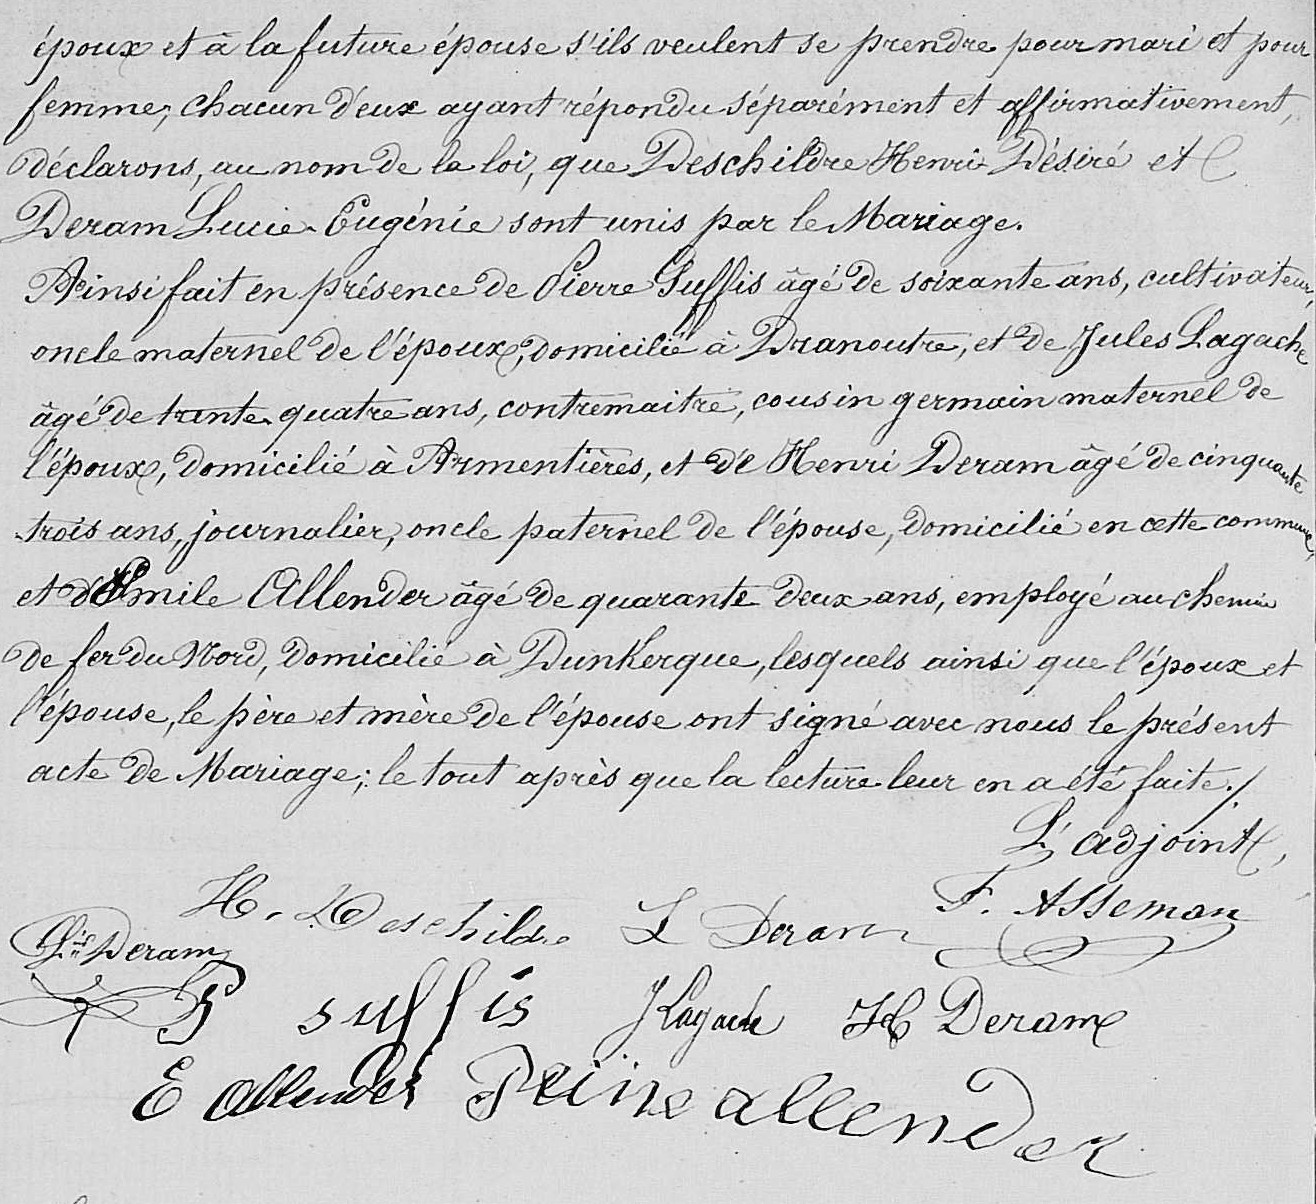 époux et à la future épouse s'ils veulent se prendre pour mari et pour
femme; chacun d'eux ayant répondu séparément et affirmativement,
déclarons, au nom de la loi, que Deschildre Henri Désiré et
Deram Lucie Eugénie sont unis par le Mariage.
Ainsi fait en présence de Pierre Suffis âgé de soixante ans, cultivateur,
oncle maternel de l'époux, domicilié à Dranoutre, et de Jules Lagache
âgé de trente quatre ans, contremaitre, cousin germain maternel de
l'époux, domicilié à Armentières, et de Henri Deram âgé de cinquante
trois ans, journalier, oncle paternel de l'épouse, domicilié en cette commune,
et d'Emile Allender âgé de quarante deux ans, employé au chemin
de fer du Nord, domicilié à Dunkerque, lesquels ainsi que l'époux et
l'épouse, le père et mère de l'épouse ont signé avec nous le présent
acte de Mariage; le tout après que la lecture leur en a été faite./.
L'adjoint,
H. Deschildre L Deram F. Asseman
Deram
P suffis J Lagache H Deram
E Allender Reine allender